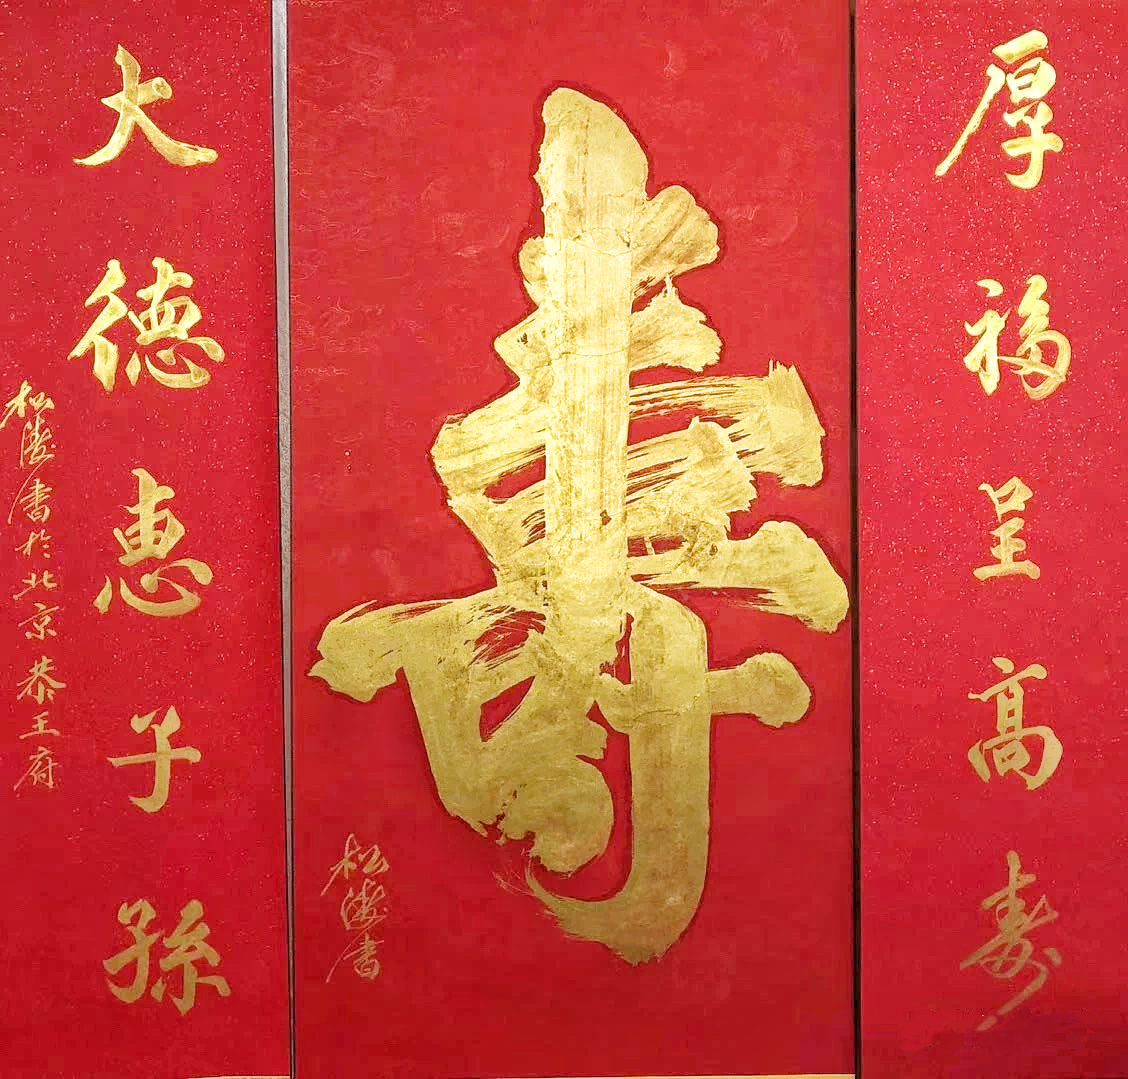 厚福呈高寿
壽
大德惠子孫
松濤書於北京恭王府
松濤書